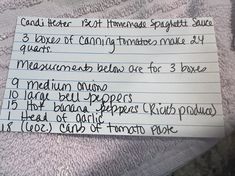 Candi Hester Best Homemade Spaghetti Sauce
3 boxes of canning tomatoes make 24
quarts.
Measurements below are for 3 boxes
9 medium onions
10 large bell peppers
15 Hot banana peppers (Rick's produce)
1 Head of garlic
18 (6oz) cans of tomato paste